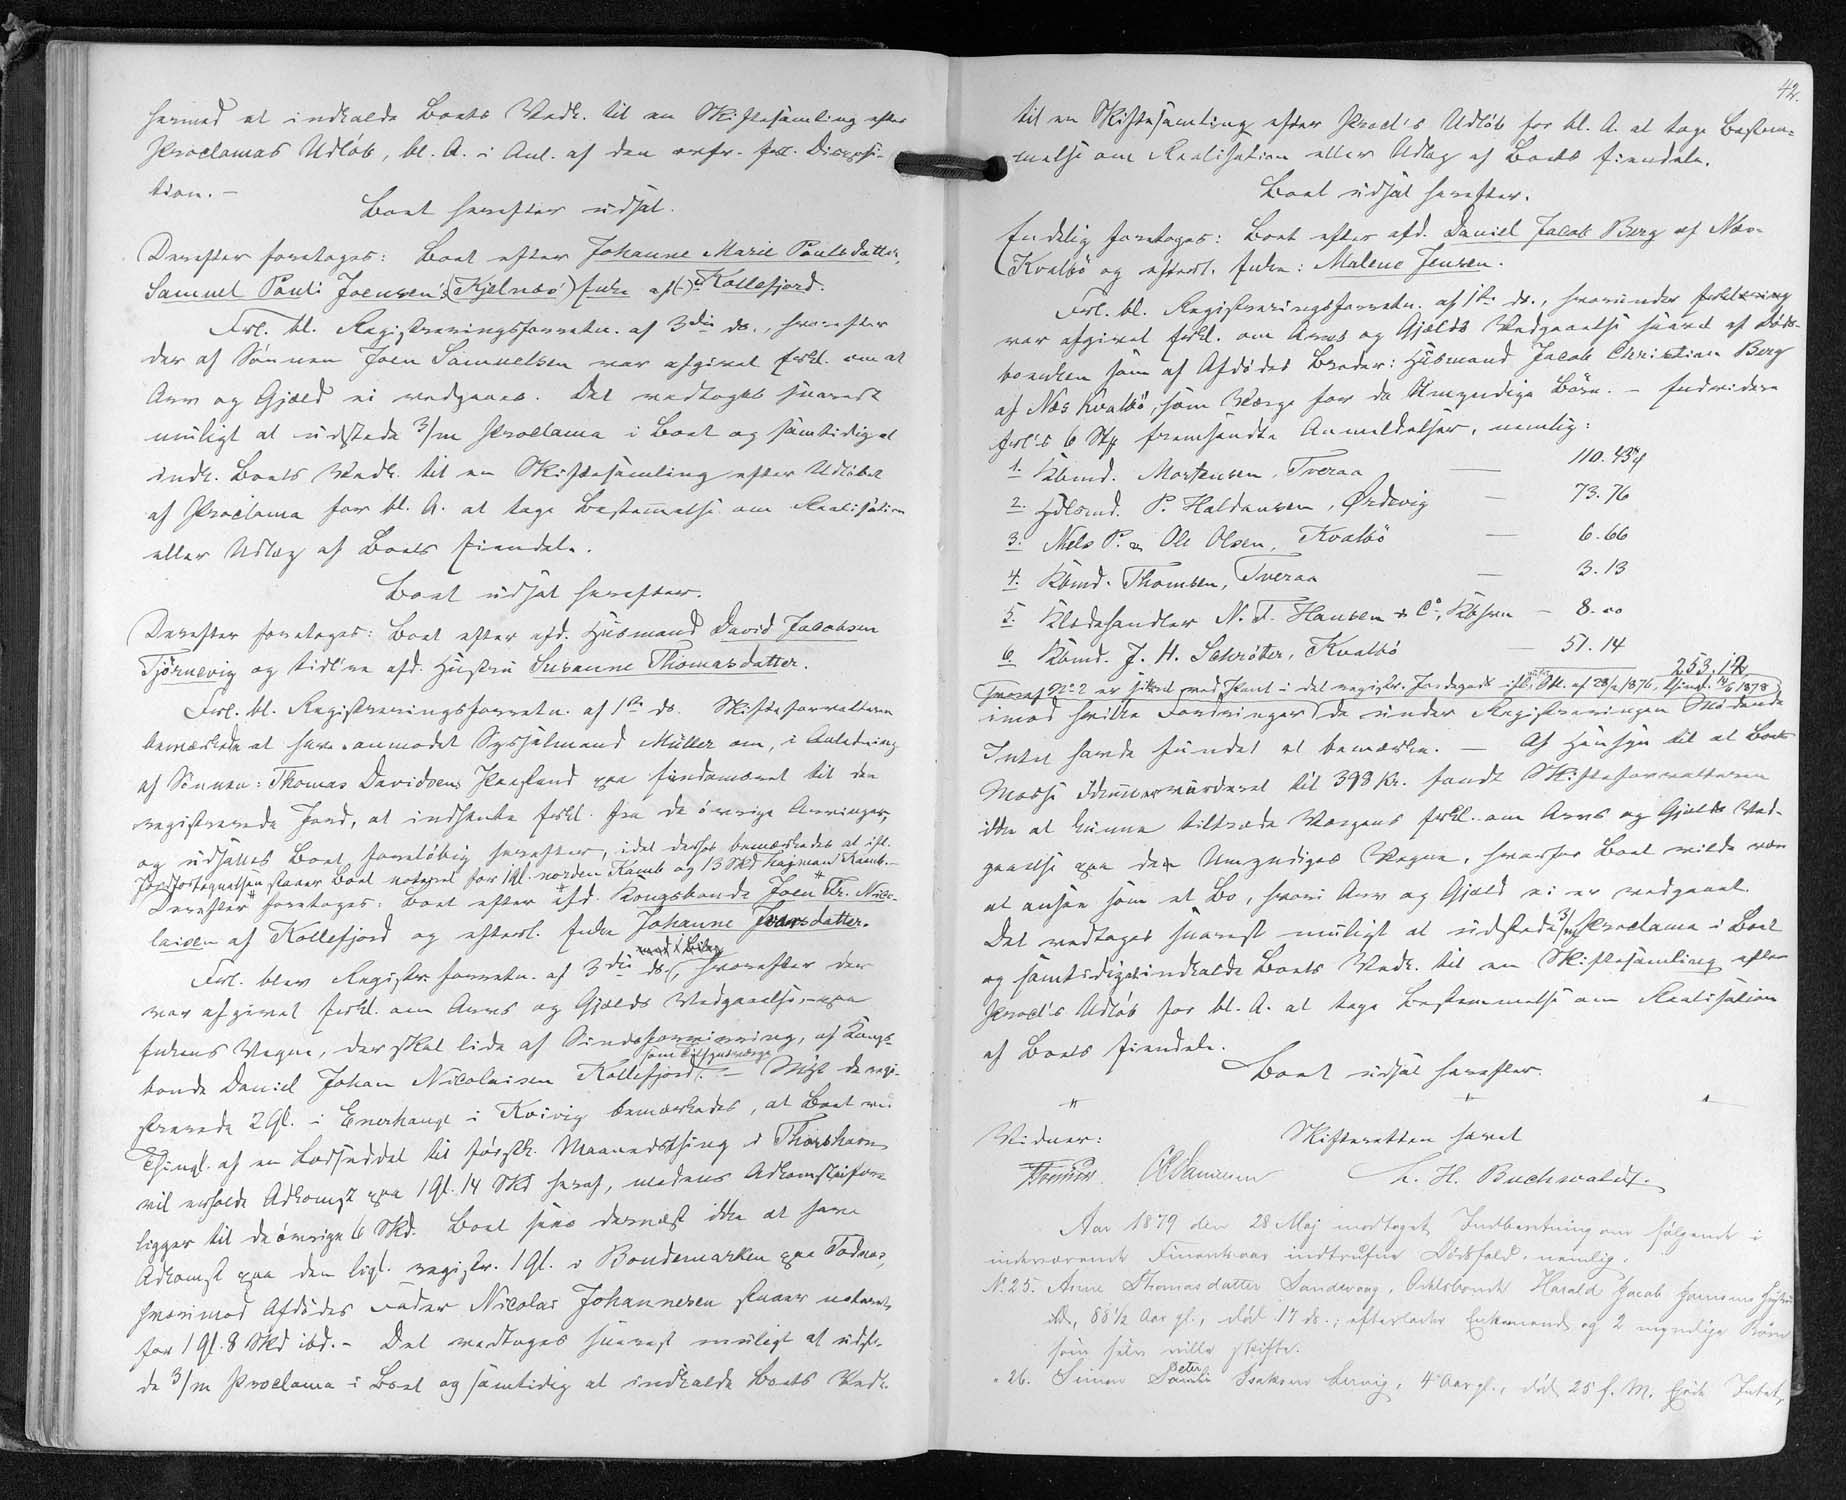 hermed at indkalde Boets Vedk. til en Skiftesamling efter
Proclamas Udløb, bl. A. i Anl. af den ovfr. fvll. Disposi-
tion. -
Boet herefter udsat.
Derefter foretoges: Boet efter Johanne Marie Poulsdatter,
Samuel Pouli Joensen's (Kjelnæs) Enke af (-) Kollefjord.
Frl. bl. Registreringsforretn. af 3die ds., hvorefter
der af Sønnen Joen Samuelsen var afgivet Erkl. om at
Arv og Gjæld ei vedgaaes. Det vedtoges snarest
muligt at udstede 3/m Proclama i Boet og samtidig at
indk. Boets Vedk. til en Skiftesamling efter Udløbet
af Proclama for bl. A. at tage Bestemmelse om Realisation
eller Udlæg af Boets Eiendele.
Boet udsat herefter.
Derefter foretoges: Boet efter afd. Husmand David Jacobsen
Tjørnevig og tidl're afd. Hustru Susanne Thomasdatter.
Frl. bl. Registreringsforretn. af 1ste ds. Skifteforvalteren
bemærkede at have anmodet Sysselmand Müller om, i Anledning
af Sønnen: Thomas Davidsens Paastand paa Eiendomsret til den
registrerede Jord, at indhente Erkl. fra de øvrige Arvinger,
og udsættes Boet foreløbig herefter, idet derhos bemærkedes at ifl.
Jordfortegnelsen staaer Boet noteret for 1 Gl. norden Kamb og 13 Skd
Derefter foretoges: Boet efter afd. Kongsbonde Joen Fr. Nico-
laisen af Kollefjord og efterl. Enke Johanne datter.
Frl. blev Registr. forretn. af 3die ds., hvorefter der
var afgivet Erkl. om Arvs og Gjælds Vedgaaelse paa
Enkens Vegne, der skal lide af Sindsforvirring, af Kongs-
som Tilsynsværge
bonde Daniel Johan Nicolaisen Kollefjord. - Mht de regi-
strerede 2 Gl. i Enerhaugt i Kvivig bemærkedes, at Boet ved
Thingl. af en Lodseddel til førstk. Maanedsthing i Thorshavn
vil erholde Adkomst paa 1 Gl. 14 Skd heraf, medens Adkomst ifore
ligger til de øvrige 6 Skd. Boet sees dernæst ikke at have
Adkomst paa den ligl. registr. 1 Gl. i Bondemarken paa Todnes,
hvorimod Afdødes Fader Nicolai Johannesen staaer noteret
for 1 Gl. 8 Skd ibd. - Det vedtoges snarest muligt at udste-
de 3/m Proclama i Boet og samtidig at indkalde Boets Vedk.
42.
til en Skiftesamling efter Procl's Udløb for bl. A. at tage Bestem-
melse om Realisation eller Udlæg af Boets Eiendele.
Boet udsat herefter.
Endelig foretoges: Boet efter afd. Daniel Jacob Berg af Næs
Kvalbø og efterl. Enke: Malene Jensen.
Frl. bl. Registreringsforretn. af 1ste ds., hvorunder
var afgivet Erkl. om Arvs og Gjælds Vedgaaelse saavel af Døds-
boenken som af Afdødes Broder: Husmand Jacob Christian Berg
af Næs Kvalbø, som Værge for de Umyndige Børn. - Endvidere
frl's 6 Stk fremsendte Anmeldelser, nemlig:
1. Kbmd. Mortensen, Tveraa — 110. 43
2. Hdlsmd. P. Haldansen, Ørdevig — 73. 76
3. Niels P. & Ole Olsen, Kvalbø — 6. 66
4. Kbmd. Thomsen, Tveraa — 3. 13
5. Klædehandler N. F. Hansen & Co, Kbhvn — 8. 00
6. Kbmd. J. H. Schrøter, Kvalbø — 51. 14
253. 12
(hvoraf No 2 er sikret ved Pant i det registr. Jordegods ifl. Obl. af 28/2 1876, thingl. 14/6 1878)
imod hvilke Fordringer de under Registreringen Mødende
Intet havde fundet at bemærke. — Af Hensyn til at Boets
Masse kun er vurderet til 398 Kr. fandt Skifteforvalteren
ikke at kunne tiltræde Værgens Erkl. om Arvs og Gjælds Ved-
gaaelse paa de Umyndiges Vegne, hvorfor Boet vilde være
at ansee som et Bo, hvori Arv og Gjæld ei er vedgaaet.
Det vedtoges snarest muligt at udstede 3/m Proclama i Boet
og samtidig at indkalde Boets Vedk. til en Skiftesamling efter
Procl's Udløb for bl. A. at tage Bestemmelse om Realisation
af Boets Eiendele.
Boet udsat herefter.
" " "
Vidner: Skifteretten hævet
L. H. Buchwaldt.
Aar 1879 den 28 Maj modtoges Indberetning om følgende i
indeværende Finantsaar indtrufne Dødsfald, nemlig:
No 25. Anne Thomasdatter Sandevaag, Odelsbonde Harald Jacob Hustru
ibd, 88 1/2 Aar gl., død 17 ds.; efterlader Enkemand og 2 myndige Børn
som selv ville skifte.
" 26. Simon Peter Isaksen Lervig, 4 Aar gl., død 25 f. M. Ejede Intet,